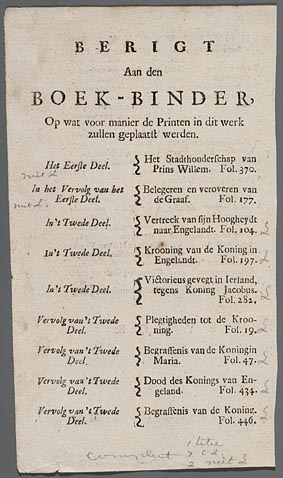 BERIGT
Aan den
BOEK-BINDER,
Op wat voor manier de Printen in dit werk
zullen geplaatſt werden.
Het Eerſte Deel. Het Stadthouderſchap van
Prins Willem. Fol. 370.
niet
In het Vervolg van het Eerſte Deel. Belegeren en veroveren van
de Graaf. Fol. 177.
niet
In't Twede Deel. Vertreek van ſijn Hoogheydt
naar Engelandt. Fol. 104.
In't Twede Deel. Krooning van de Koning in
Engelandt. Fol. 197.
In't Twede Deel. Victorieus gevegt in Ierland,
tegens Koning Jacobus.
Fol. 282.
Vervolg van't Twede Deel. Plegtigheden tot de Kroo-
ning. Fol. 19.
Vervolg van't Twede Deel. Begraffenis van de Koningin
Maria. Fol. 47.
Vervolg van't Twede Deel. Dood des Konings van En-
geland. Fol. 434.
Vervolg van't Twede Deel. Begraffenis van de Koning.
Fol. 446.
compleet 1 titel
2 niet